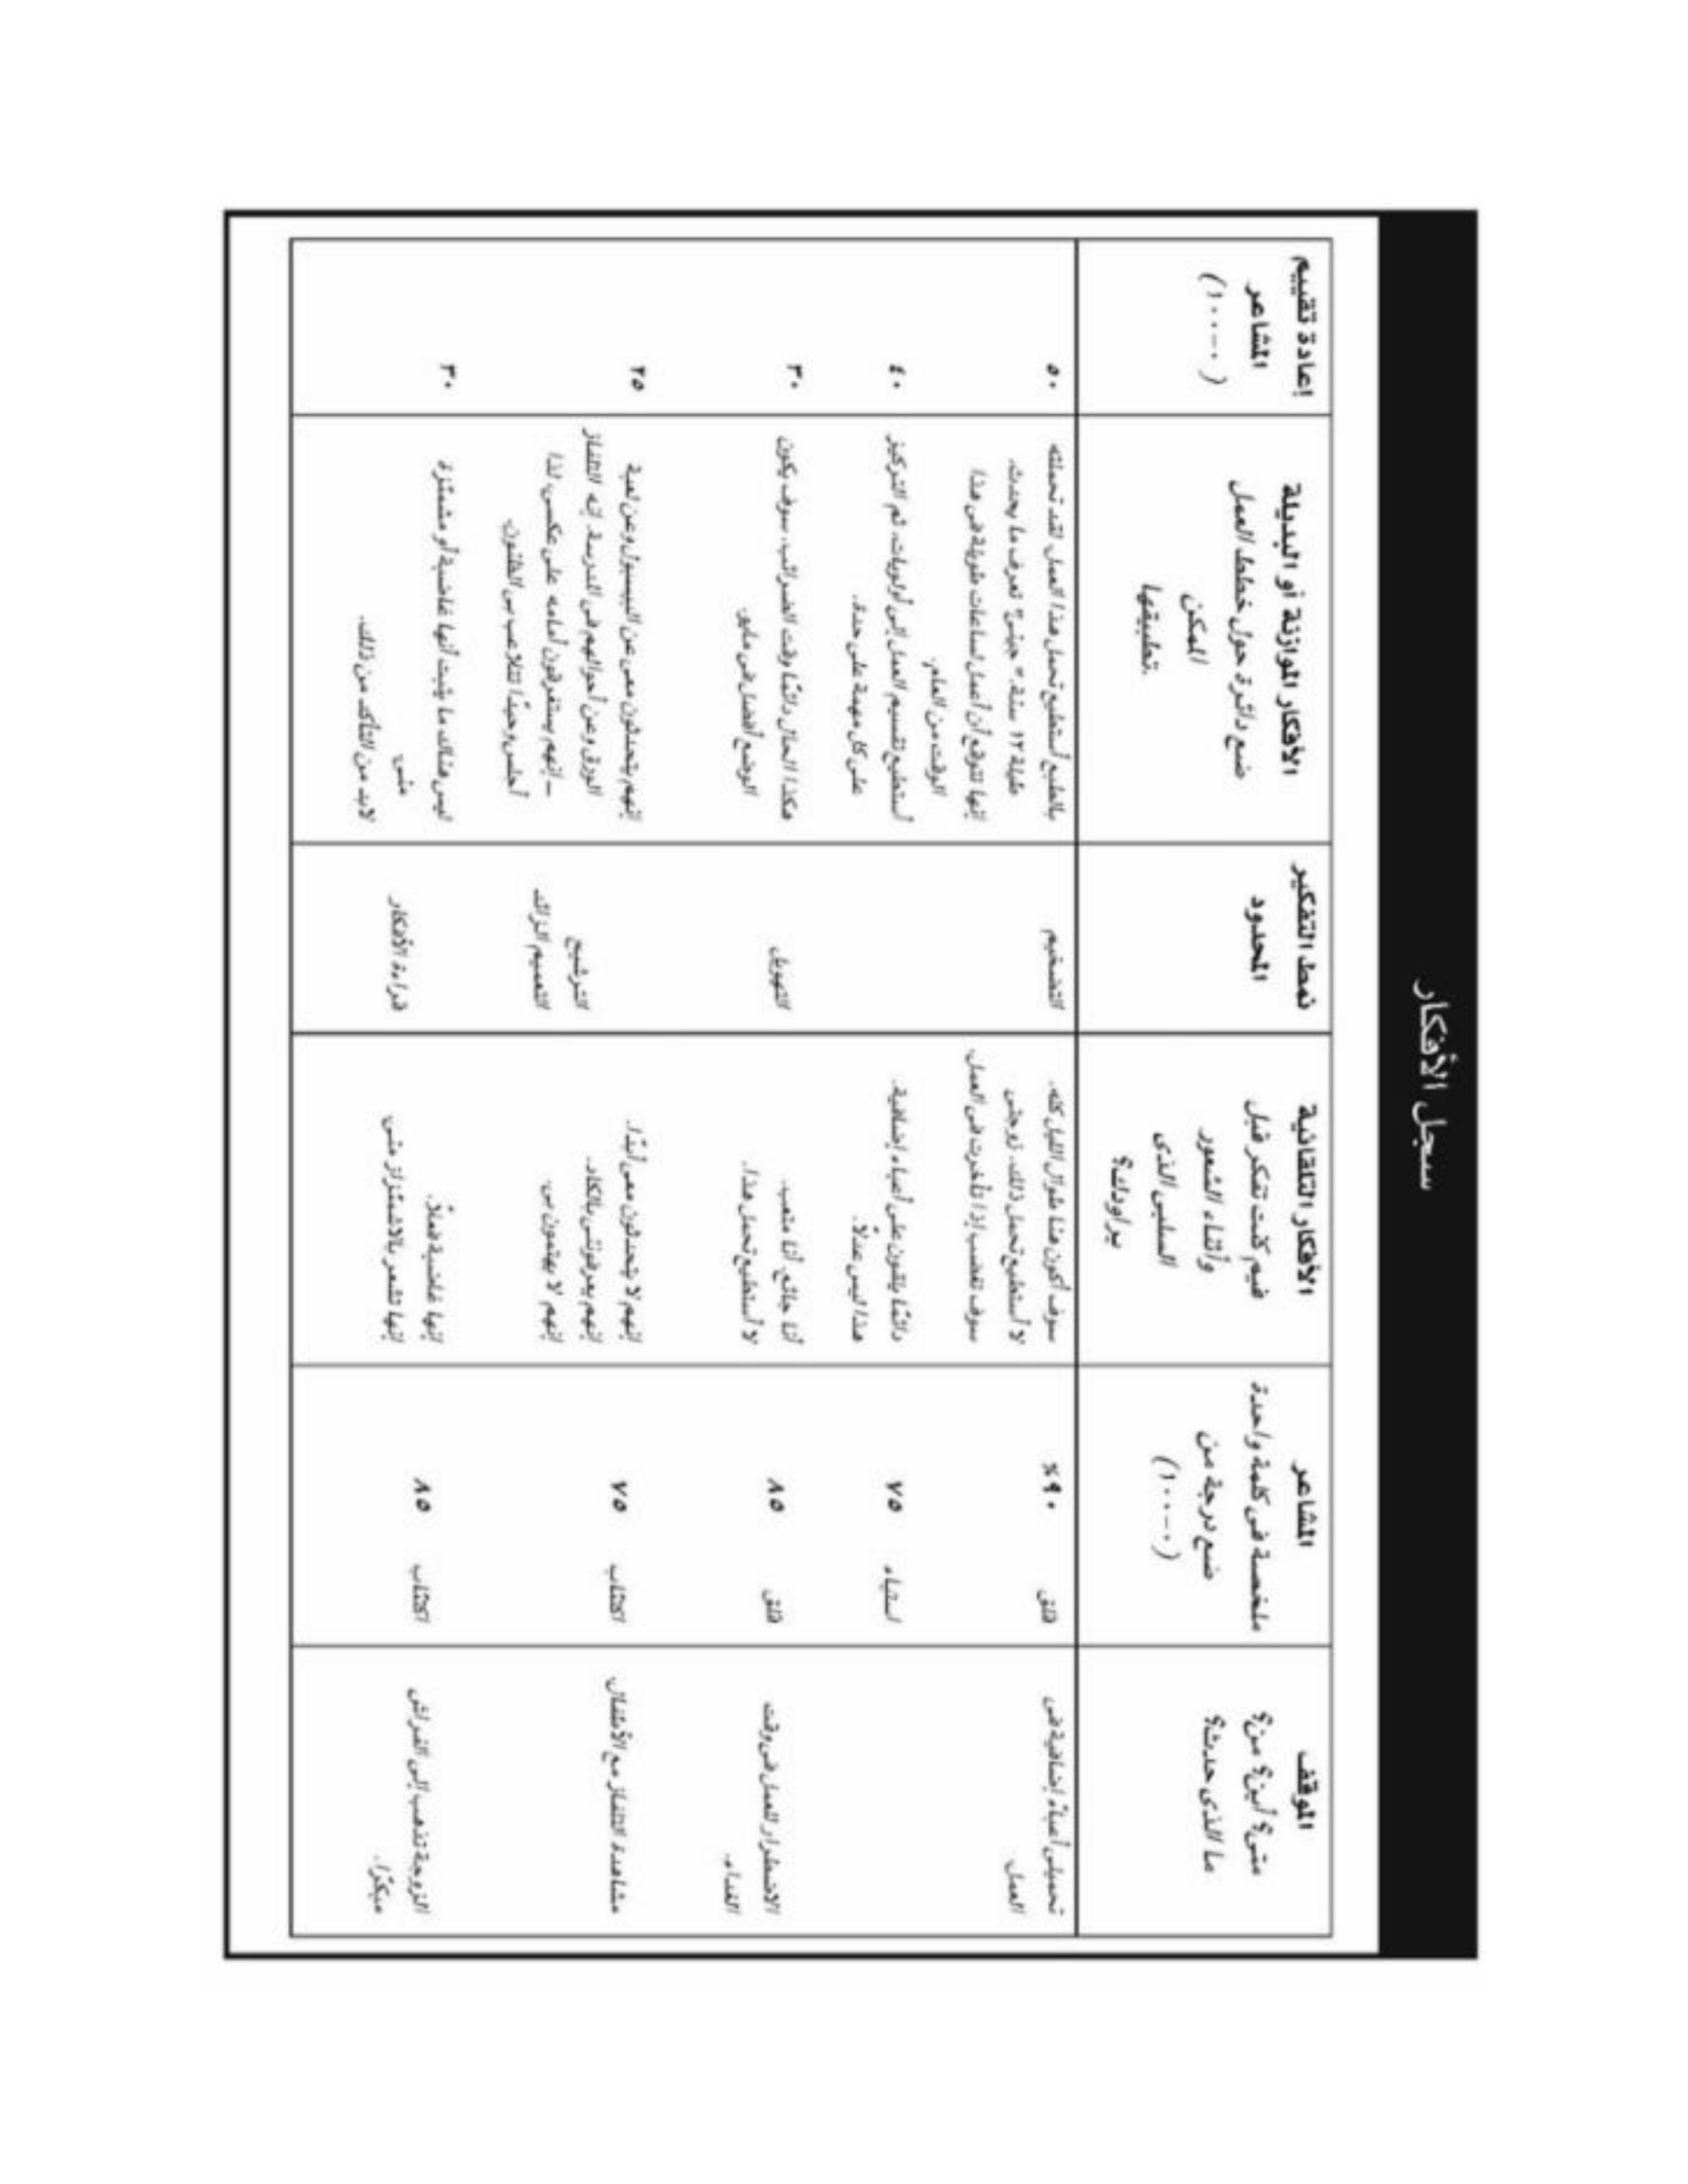 سجل الأفكار
الموقف
متى؟ أين؟ من؟
ما الذى حدث؟
المشاعر
ملخصة فى كلمة واحدة
ضع درجة من
(٠-١٠٠)
الأفكار التلقائية
فيم كنت تفكر قبل
وأثناء الشعور
السلبى الذى
يراودك؟
نمط التفكير
المحدود
الأفكار الموازنة أو البديلة
ضع دائرة حول خطط العمل
الممكن
تطبيقها.
إعادة تقييم
المشاعر
(٠-١٠٠)
تحميلى أعباءً إضافية فى
العمل.
قلق ٩٠٪
سوف أكون هنا طوال الليل كله.
لا أستطيع تحمل ذلك. زوجتى
سوف تغضب إذا تأخرت فى العمل.
التضخيم
بالطبع أستطيع تحمل هذا العمل. لقد تحملته
طيلة ١٢ سنة. " جينى" تعرف ما يحدث.
إنها تتوقع أن أعمل لساعات طويلة فى هذا
الوقت من العام.
٥٠
استياء ٧٥
دائمًا يلقون على أعباء إضافية.
هذا ليس عدلاً.
أستطيع تقسيم العمل إلى أولويات، ثم التركيز
على كل مهمة على حدة.
٤٠
الاضطرار للعمل فى وقت
الغداء.
قلق ٨٥
أنا جائع. أنا متعب.
لا أستطيع تحمل هذا.
التهويل
هكذا الحال دائمًا وقت الضرائب. سوف يكون
الوضع أفضل فى مايو.
٣٠
مشاهدة التلفاز مع الأطفال.
اكتئاب ٧٥
إنهم لا يتحدثون معى أبدًا.
إنهم يعرفوننى بالكاد.
إنهم لا يهتمون بى.
الترشيح
التعميم الزائد
إنهم يتحدثون معى عن البيسبول وعن لعبة
الورق وعن أحوالهم فى المدرسة. إنه التلفاز
– إنهم يستغرقون أمامه على عكسى، لذا
أجلس وحيدًا تتلاعب بى الظنون.
٢٥
الزوجة تذهب إلى الفراش
مبكرًا.
اكتئاب ٨٥
إنها غاضبة فعلاً.
إنها تشعر بالاشمئزاز منى.
قراءة الأفكار
ليس هناك ما يثبت أنها غاضبة أو مشمئزة
منى.
لابد من التأكد من ذلك.
٣٠